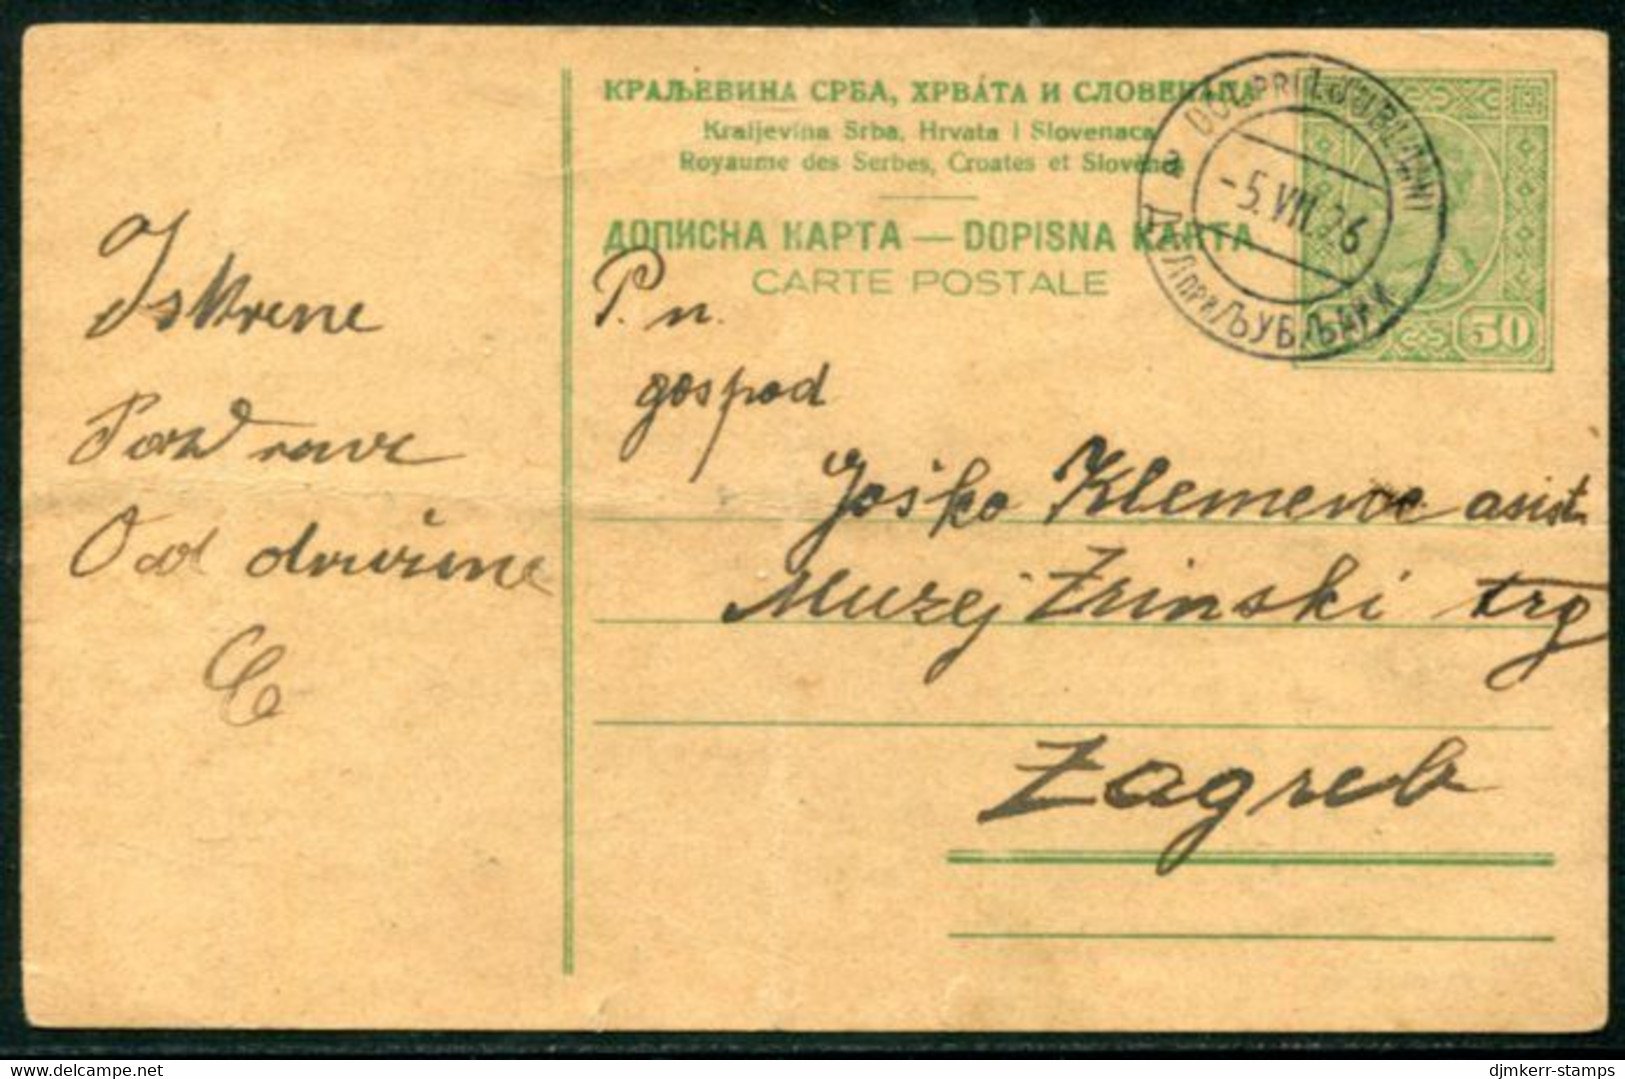 КРАЉЕВИНА СРБА, ХРВАТА И СЛОВЕНАЦА
Kraljevina Srba, Hrvata i Slovenaca
Royaume des Serbes, Croates et Slovènes
ДОПИСНА КАРТА — DOPISNA KARTA
CARTE POSTALE
DOL PRI LJUBLJANI
a
-5.VII.26
ДОЛ ПРИ ЉУБЉАНИ
50
Iskrene
Pozdrave
Od družine
P. n.
gospod
Joško Klemenc asist.
Muzej Zrinski trg
Zagreb
delcampe.net
djmkerr-stamps